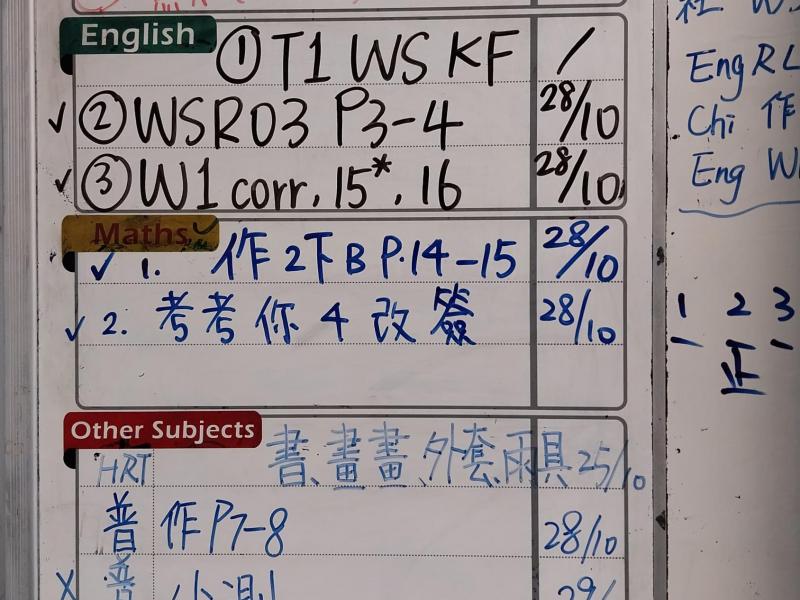 English
① T1 WS KF /
✓ ② WSR03 P3-4 28/10
✓ ③ W1 corr, 15*, 16 28/10
Maths
✓ 1. 作2下B P.14-15 28/10
✓ 2. 考考你 4 改簽 28/10
Other Subjects
HRT 書、畫畫、外套、雨具 25/10
普 作P7-8 28/10
X 普 小測 29/
Eng RL
Chi 作
Eng W
1 2 3
正